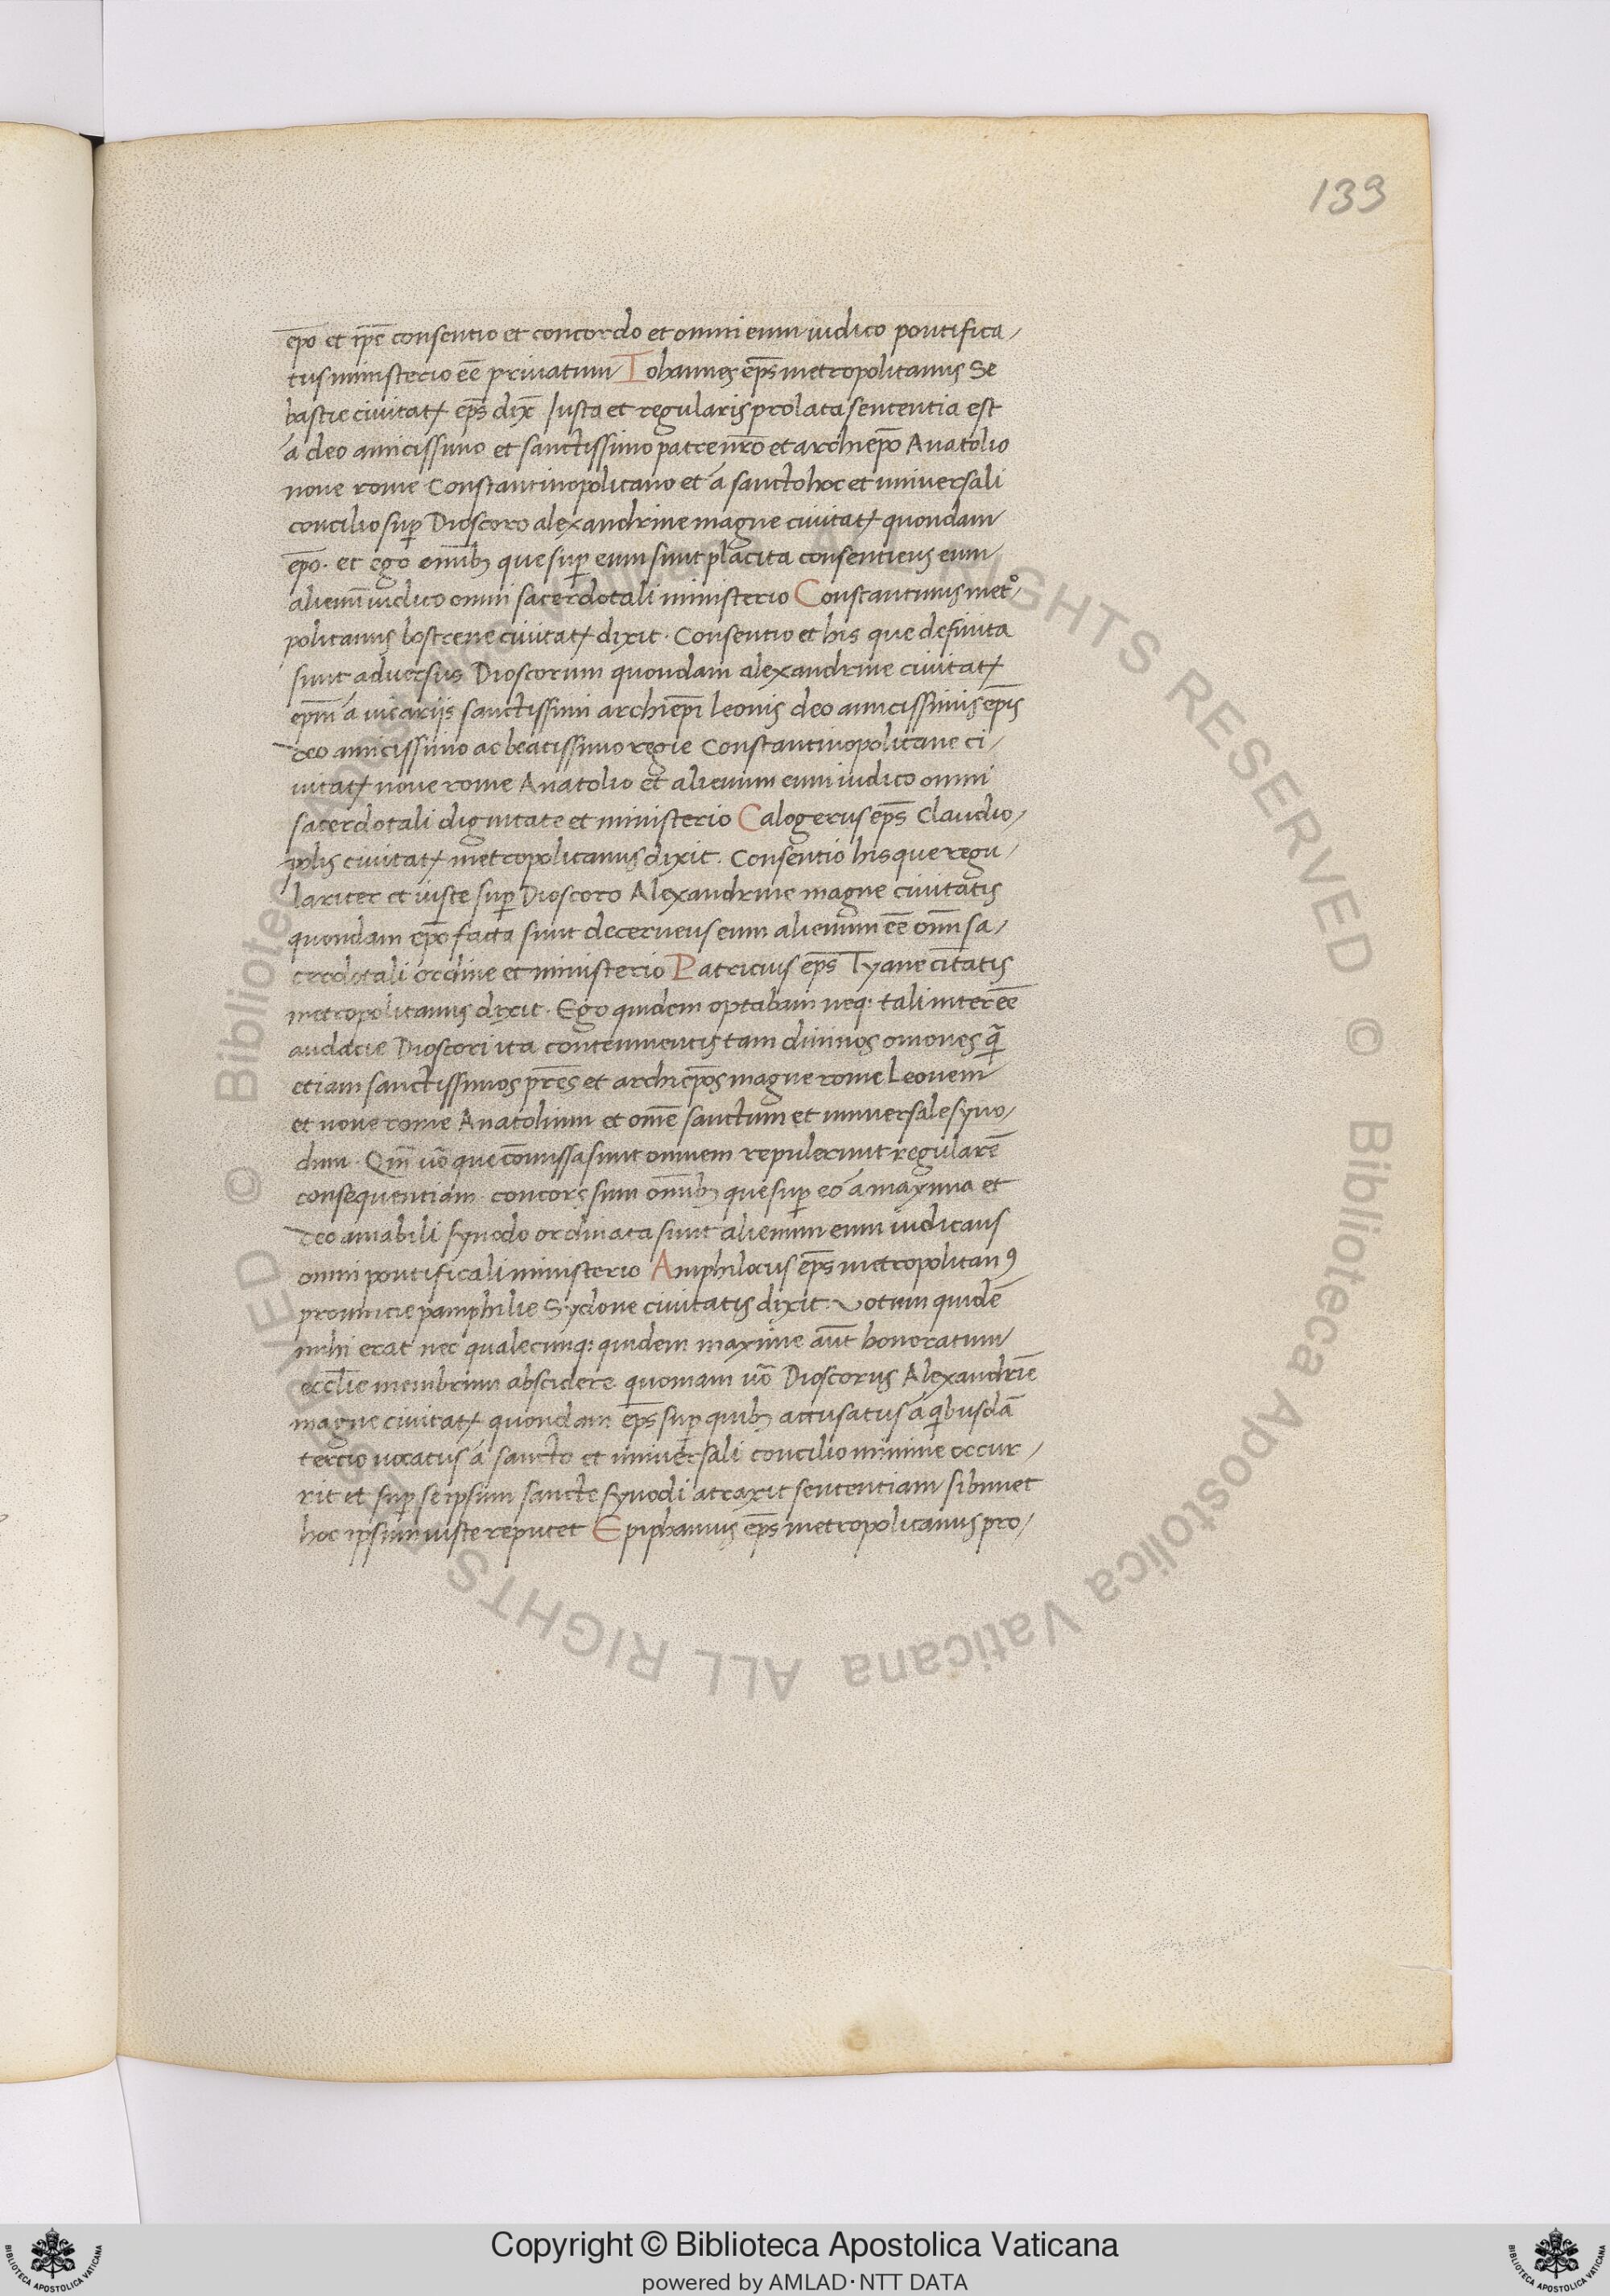 139
ep̅o et ip̅e consentio et concordo et omni eum iudico pontifica/
tus ministerio ee̅ privatum Iohannes ep̅s metropolitanus Se
bastie civitatꝭ ep̅s dix̅ Iusta et regularis prolata sententia est
á deo amicissimo et sanctissimo patre nr̅o et archiep̅o Anatolio
nove rome Constantinopolitano et á sancto hoc et universali
concilio sup̅ Dioscoro alexandrine magne civitatꝭ quondam
ep̅o. et ego om̅ibꝫ que sup̅ eum sunt placita consentiens eum
alienu̅ iudico omni sacerdotali ministerio Constantinus metº/
politanus bostrene civitatꝭ dixit. Consentio et his que definita
sunt adversus Dioscorum quondam alexandrine civitatꝭ
ep̅m á vicariis sanctissimi archiep̅i leonis deo amicissimis ep̅is
deo amicissimo ac beatissimo regie Constantinopolitane ci/
vitatꝭ nove rome Anatolio et alienum eum iudico omni
sacerdotali dignitate et ministerio Calogerus ep̅s Claudio/
polis civitatꝭ metropolitanus dixit. Consentio his que regu/
lariter et iuste sup̅ Dioscoro Alexandrine magne civitatis
quondam ep̅o facta sunt decernens eum alienum ee̅ om̅i sa/
cerdotali ordine et ministerio Patricius ep̅s Tyane citatis
metropolitanus dixit. Ego quidem optabam neq: tali interee̅
audacie Dioscori ita contemnentis tam divinos om̅ones q̅
etiam sanctissimos pr̅es et archiep̅os magne rome Leonem
et nove rome Anatolium et om̅e sanctum et universale syno/
dum. Qm̅ vo̅ que co̅missa sunt omnem repulerunt regulare̅
consequentiam. concors sum om̅ibꝫ que sup̅ eó á maxima et
deo amabili synodo ordinata sunt alienum eum iudicans
omni pontificali ministerio Amphilocus ep̅s metropolitanꝰ
provincie pamphilie Sydone civitatis dixit. Votum quide̅
mihi erat nec qualecunq: quidem maxime aut̅ honoratum
eccl̅ie membrum abscidere quoniam vo̅ Dioscorus Alexandrie̅
magne civitatꝭ quondam ep̅s sup̅ quibꝫ accusatus á qibusda̅
tertio vocatus á sancto et universali concilio minime occur/
rit et sup̅ se ipsum sancte synodi atraxit sententiam sibimet
hoc ipsum iuste reputet Epiphanius ep̅s metropolitanus pro/
© Biblioteca Apostolica Vaticana ALL RIGHTS RESERVED © Biblioteca Apostolica Vaticana ALL RIGHTS RESERVED
Copyright © Biblioteca Apostolica Vaticana
powered by AMLAD·NTT DATA
BIBLIOTECA APOSTOLICA VATICANA
BIBLIOTECA APOSTOLICA VATICANA